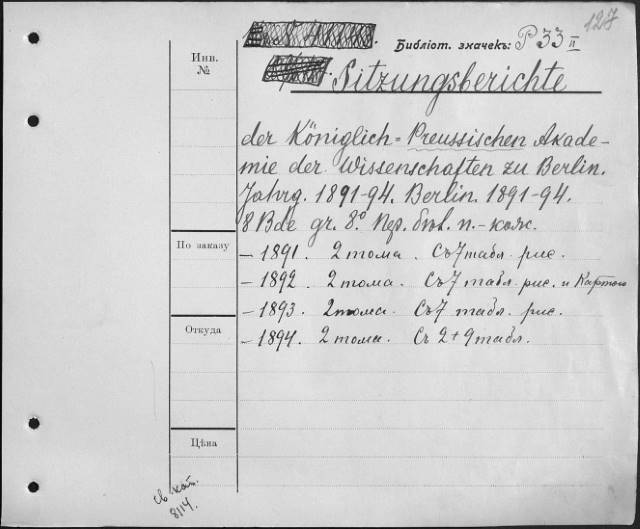 127
Библіот. значекъ: P 33 II
Инв.
№
Sitzungsberichte
der Königlich-Preussischen Akade-
mie der Wissenschaften zu Berlin.
Jahrg. 1891-94. Berlin. 1891-94.
8 Bde gr. 8° Пер. бѣл. п.-кож.
По заказу
- 1891. 2 тома. Съ 7 табл. рис.
- 1892. 2 тома. Съ 7 табл. рис. и Картою
- 1893. 2 тома. Съ 7 табл. рис.
Откуда
- 1894. 2 тома. Съ 2+9 табл.
Цѣна
св. кат.
8114.